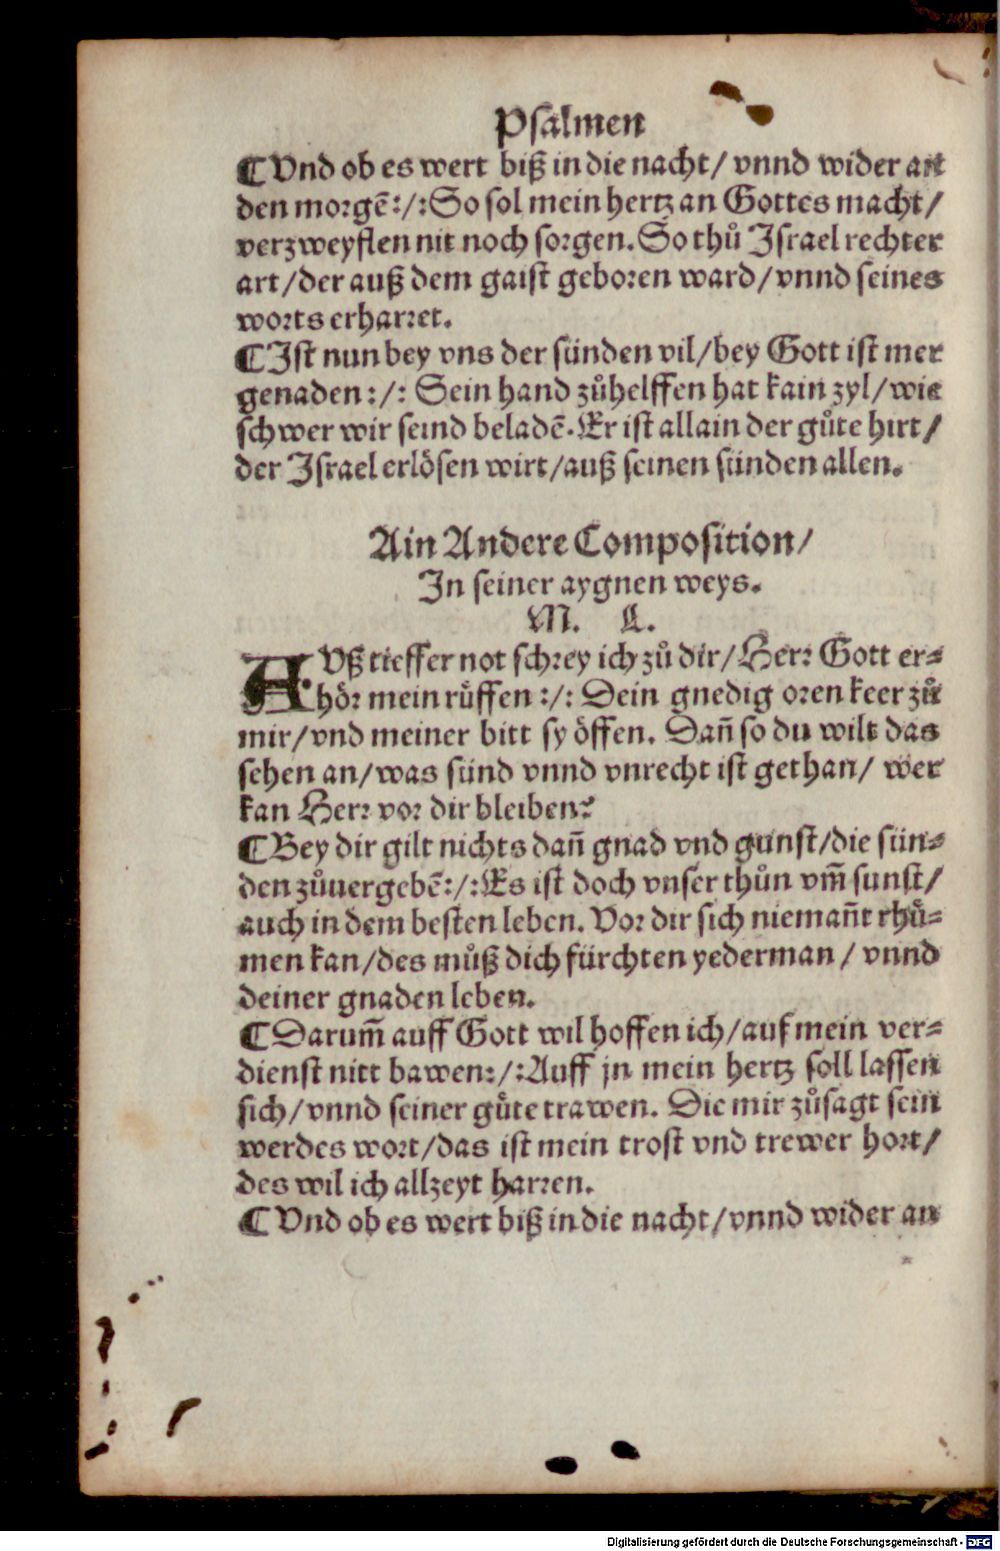 Psalmen
¶ Vnd ob es wert biß in die nacht/ vnnd wider an
den morgē:/: So sol mein hertz an Gottes macht/
verzweyflen nit noch sorgen. So thů Israel rechter
art/der auß dem gaist geboren ward/vnnd seines
worts erharret.
¶ Ist nun bey vns der sünden vil/bey Gott ist mer
genaden:/: Sein hand zůhelffen hat kain zyl/wie
schwer wir seind beladē. Er ist allain der gůte hirt/
der Israel erlösen wirt/auß seinen sünden allen.
Ain Andere Composition/
In seiner aygnen weys.
M. L.
AVß tieffer not schrey ich zů dir/Herr Gott er-
hör mein rüffen:/: Dein gnedig oren keer zů
mir/vnd meiner bitt sy öffen. Dañ so du wilt das
sehen an/was sünd vnnd vnrecht ist gethan/ wer
kan Herr vor dir bleiben?
¶ Bey dir gilt nichts dañ gnad vnd gunst/die sün-
den zůuergebē:/: Es ist doch vnser thůn vm̃ sunst/
auch in dem besten leben. Vor dir sich niemañt rhů-
men kan/des můß dich fürchten yederman/ vnnd
deiner gnaden leben.
¶ Darum̃ auff Gott wil hoffen ich/auf mein ver-
dienst nitt bawen:/: Auff jn mein hertz soll lassen
sich/vnnd seiner gůte trawen. Die mir zůsagt sein
werdes wort/das ist mein trost vnd trewer hort/
des wil ich allzeyt harren.
¶ Vnd ob es wert biß in die nacht/vnnd wider an
Digitalisierung gefördert durch die Deutsche Forschungsgemeinschaft - DFG